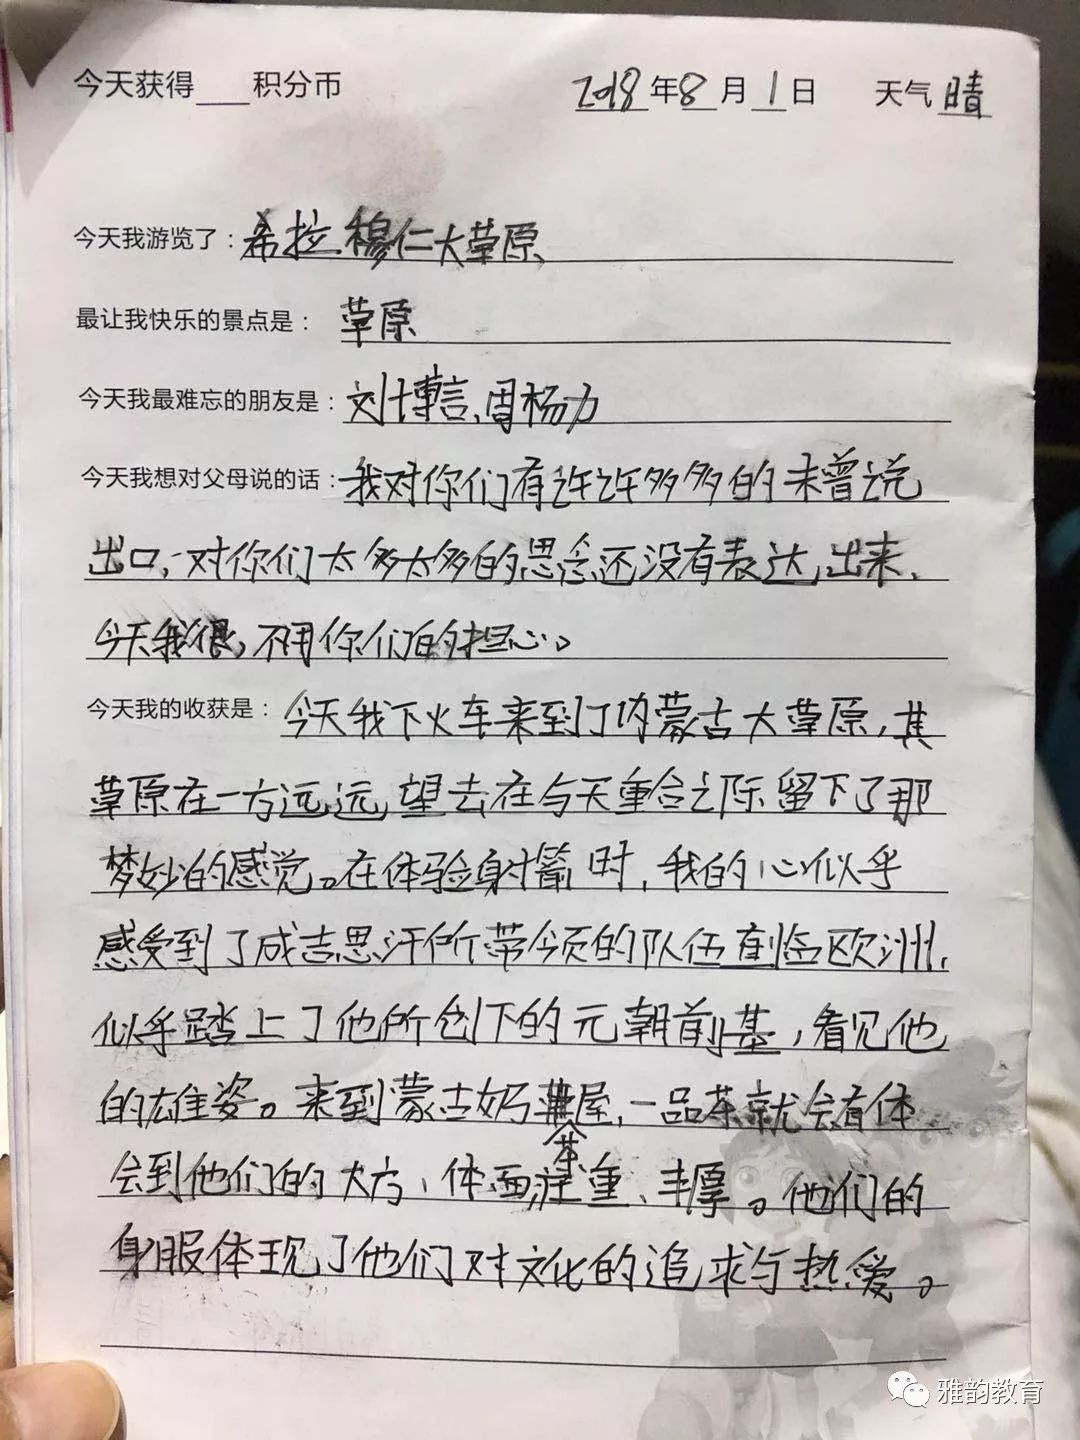 今天获得 积分币 2018年8月1日 天气 晴
今天我游览了：希拉穆仁大草原
最让我快乐的景点是：草原
今天我最难忘的朋友是：刘博言、周杨力
今天我想对父母说的话：我对你们有许许多多的未曾说
出口,对你们太多太多的思念还没有表达出来、
今天我很,不用你们的担心。
今天我的收获是：今天我下火车来到了内蒙古大草原,其
草原在一方远远望去在与天重合之际留下了那
梦妙的感觉。在体验射箭时,我的心似乎
感受到了成吉思汗所带领的队伍到临欧洲,
似乎踏上了他所创下的元朝前基,看见他
的雄姿。来到蒙古奶茶屋,一品茶就会有体
会到他们的大方、体面,注重、丰厚。他们的
身服体现了他们对文化的追求与热爱。
雅韵教育